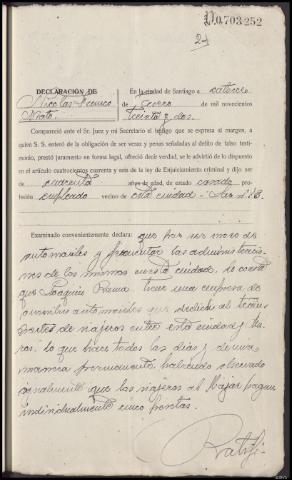 P.0.703252
2
DECLARACIÓN DE
En la ciudad de Santiago a catorce
de enero de mil novecientos
treinta y dos.
Compareció ante el Sr. Juez y mi Secretario el testigo que se expresa al margen, a
quien S. S. enteró de la obligación de ser veraz y penas señaladas al delito de falso testimonio,
prestó juramento en forma legal, ofreció decir verdad, se le advirtió de lo dispuesto
en el artículo cuatrocientos cuarenta y seis de la ley de Enjuiciamiento criminal y dijo ser
de cuarenta años de edad, de estado casado pro-
fesión empleado vecino de esta ciudad
Examinado convenientemente declara: que por ser
automoviles y frecuentar las administracio-
nes de los mismos en esta ciudad, le consta
que Joaquin tiene una empresa de
automoviles que dedica al trans-
porte de viajeros entre esta ciudad y
lo que hace todos los dias y de una
manera permanente habiendo observado
que los viajeros al bajar pagan
individualmente cinco pesetas.
Ratifi-